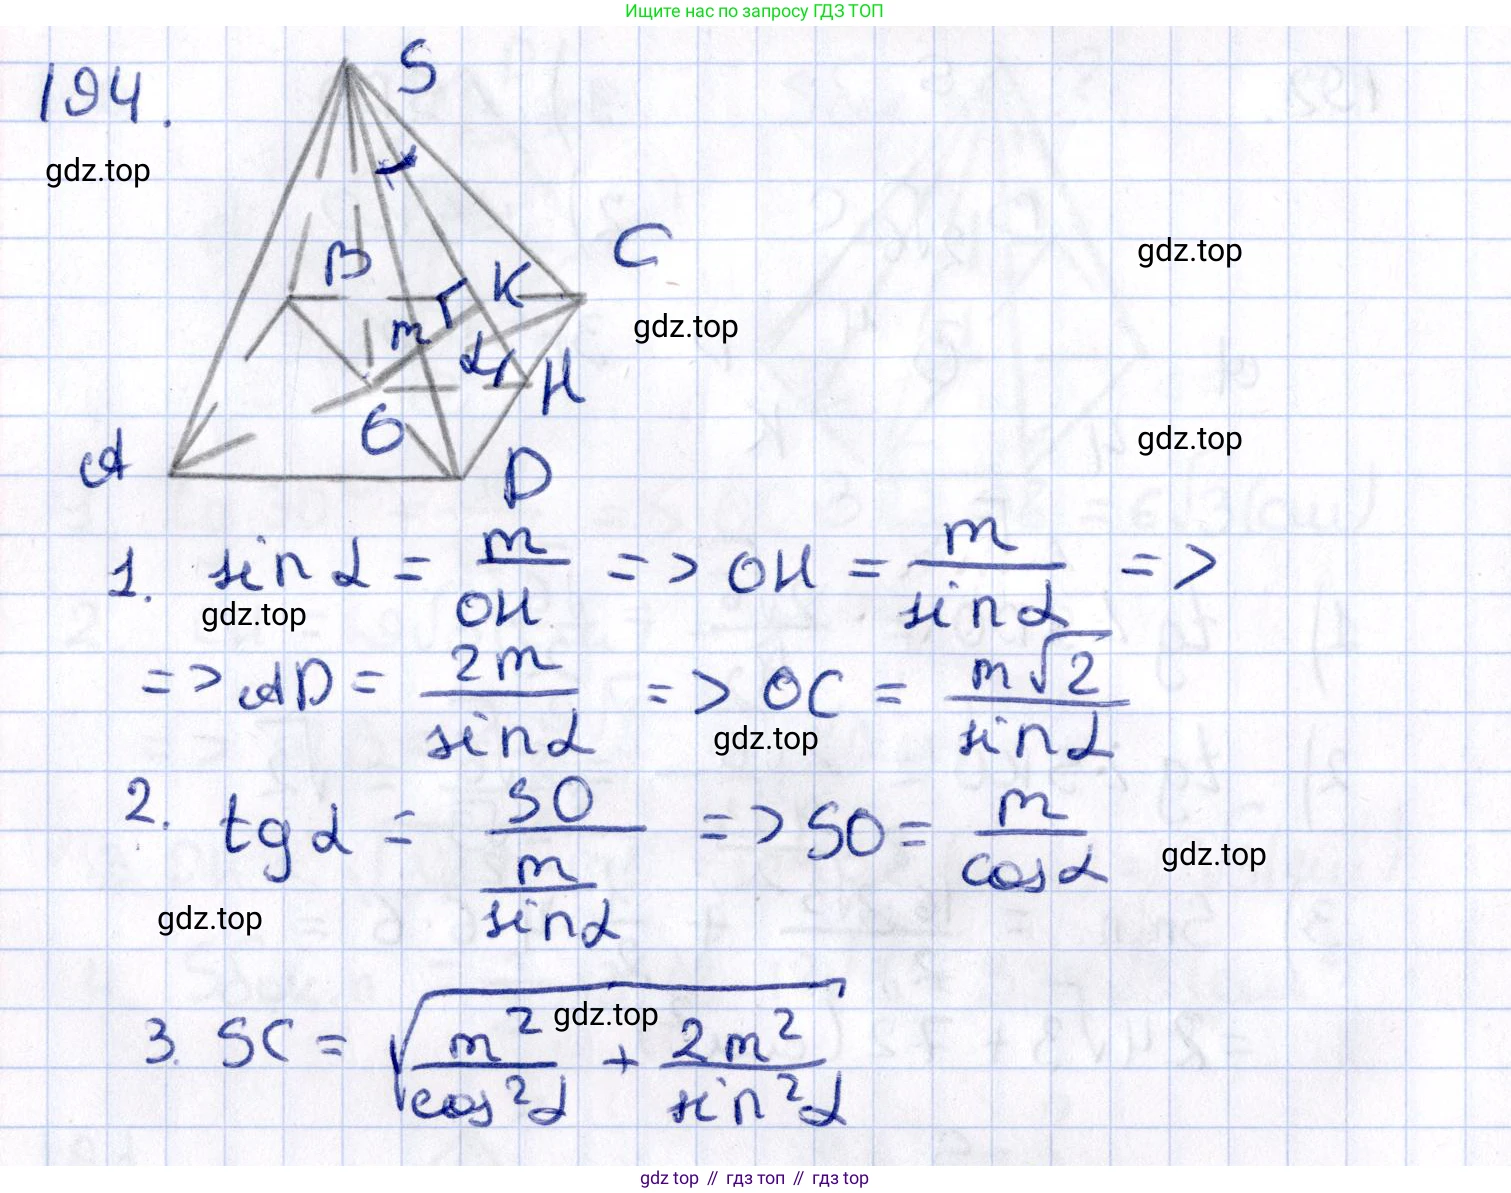 Ищите нас по запросу ГДЗ ТОП
194.
S
gdz.top
C
gdz.top
B
K
gdz.top
m
α
H
O
gdz.top
A
D
1. sin α = m/OH => OH = m/sin α =>
gdz.top
=> AD = 2m/sin α => OC = m√2/sin α
gdz.top
2. tg α = SO/(m/sin α) => SO = m/cos α
gdz.top
gdz.top
3. SC = √(m²/cos²α + 2m²/sin²α)
gdz.top
gdz top // гдз топ // gdz.top